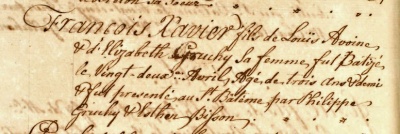 François Xavier fils de Louis Avoine
& d'Elizabeth Gruchy sa femme, fut Batizé
le Vingt-deuxme Avril, Agé de trois ans & demi
& fut presenté au St. Batême par Philippe
Gruchy & Esther Bisson.